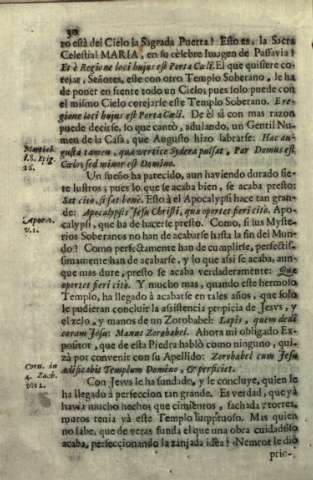 30
ro està del Cielo la Sagrada Puerta? Esto es, la Sacra
Celestial MARIA, en su célebre Imagen de Passavia?
Et è Regione loci hujus est Porta Cæli. El que quisiere co-
tejar, Señores, este con otro Templo Soberano, le ha
de poner en frente todo un Cielo; pues solo puede con
el mismo Cielo cotejarse este Templo Soberano. E re-
gione loci hujus est Porta Cæli. De él sì con mas razon
puede decirse, lo que cantò, adulando, un Gentil Nu-
men de la Casa, que Augusto hizo labrarse: Hæc au-
Martial.
l. 8. Epig.
gusta tamen, quæ vertice sydera pulsat, Par Domus est
36.
Cœlo, sed minor est Domino.
Un sueño ha parecido, aun haviendo durado sie-
te lustros; pues lo que se acaba bien, se acaba presto:
Sat cito, si sat benè. Esto à el Apocalypsi hace tan gran-
Apoc.
de: Apocalypsis Jesu Christi, quæ oportet fieri citò. Apo-
v. 1.
calypsi, que ha de hacerse presto. Como, si sus Myste-
rios Soberanos no han de acabarse hasta la fin del Mun-
do? Como perfectamente han de cumplirse, perfectis-
simamente han de acabarse, y lo que assi se acaba, aun-
que mas dure, presto se acaba verdaderamente: Quæ
oportet fieri citò. Y mucho mas, quando este hermoso
Templo, ha llegado à acabarse en tales años, que solo
le pudieran concluir la asistencia propicia de Jesvs, y
el zelo, y manos de un Zorobabel: Lapis, quem dedi
coram Jesu: Manus Zorobabel. Ahora mi obligado Ex-
positor, que de esta Piedra hablò como ninguno, qui-
Corn. in
zà por convenir con su Apellido: Zorobabel cum Jesu
4. Zach.
ædificabis Templum Domino, & perficiet.
Con Jesvs le ha fundado, y le concluye, quien le
ha llegado à perfeccion tan grande. Es verdad, que yà
havia mucho hechos que cimientos, fachada, torres,
muros tenia yà este Templo sumptuoso. Mas quien
no sabe, que de veras funda el que una obra cuidadoso
acaba, perfeccionando la zanjada idèa? Nemrot le diò
prin-